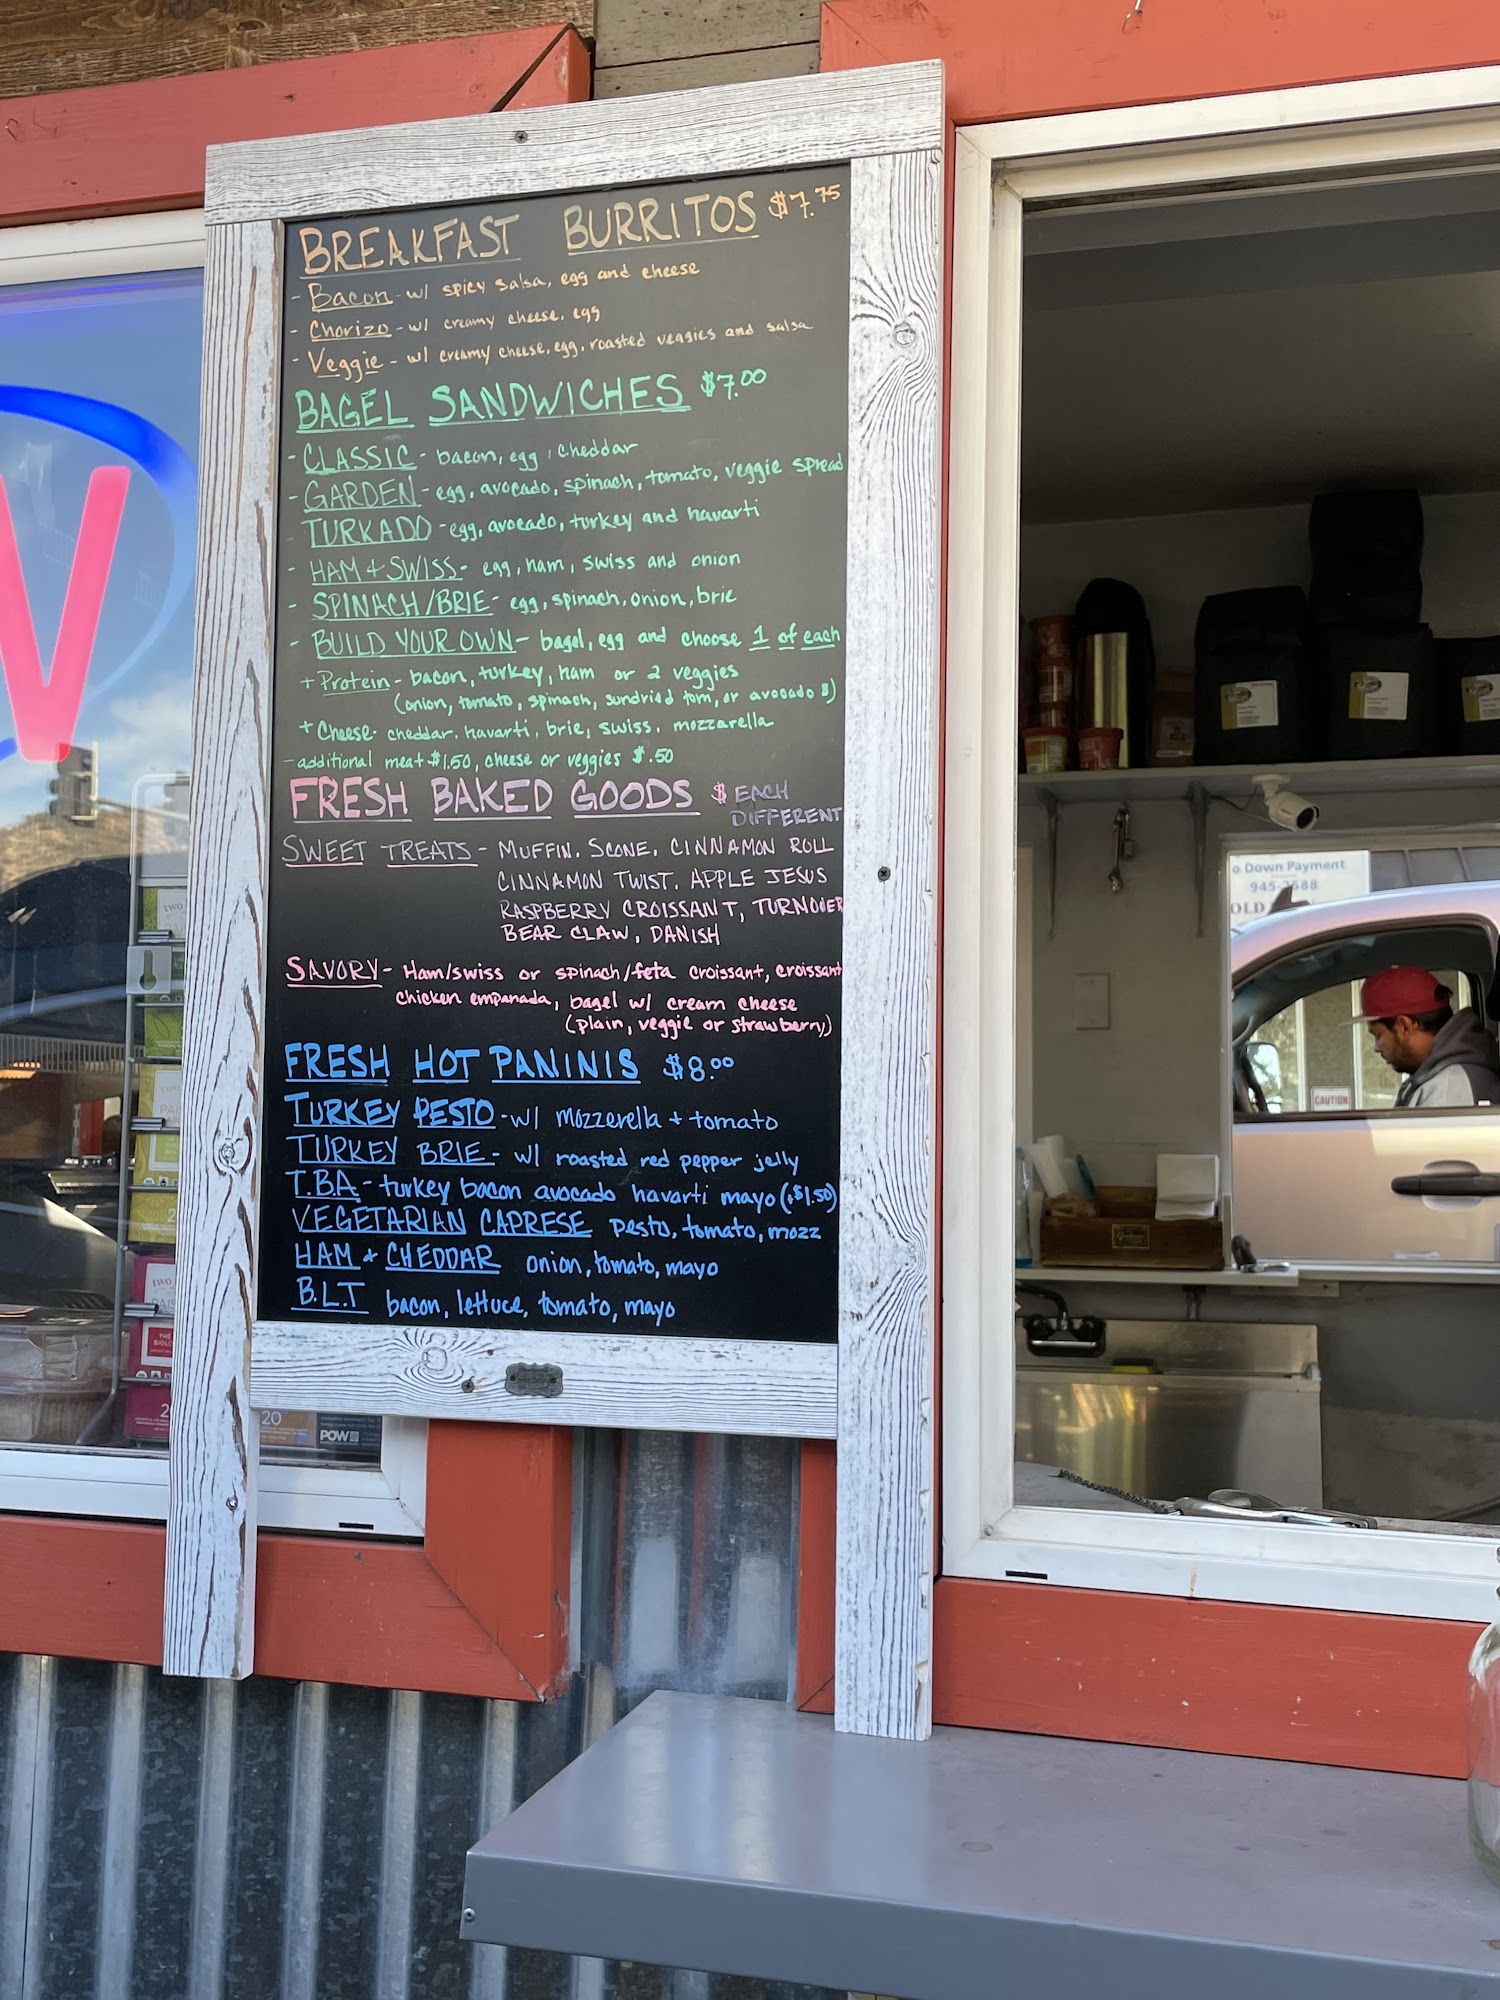 BREAKFAST BURRITOS $7.75
- Bacon - w/ spicy salsa, egg and cheese
- Chorizo - w/ creamy cheese, egg
- Veggie - w/ creamy cheese, egg, roasted veggies and salsa
BAGEL SANDWICHES $7.00
- CLASSIC - bacon, egg, cheddar
- GARDEN - egg, avocado, spinach, tomato, veggie spread
- TURKADO - egg, avocado, turkey and havarti
- HAM + SWISS - egg, ham, swiss and onion
- SPINACH/BRIE - egg, spinach, onion, brie
- BUILD YOUR OWN - bagel, egg and choose 1 of each
+ Protein - bacon, turkey, ham or 2 veggies
(onion, tomato, spinach, sundried tom, or avocado)
+ Cheese - cheddar, havarti, brie, swiss, mozzarella
- additional meat $1.50, cheese or veggies $.50
FRESH BAKED GOODS $ EACH
DIFFERENT
SWEET TREATS - MUFFIN, SCONE, CINNAMON ROLL
CINNAMON TWIST, APPLE JESUS
RASPBERRY CROISSANT, TURNOVER
BEAR CLAW, DANISH
SAVORY - Ham/swiss or spinach/feta croissant, croissant
chicken empanada, bagel w/ cream cheese
(plain, veggie or strawberry)
FRESH HOT PANINIS $8.00
TURKEY PESTO - w/ mozzerella + tomato
TURKEY BRIE - w/ roasted red pepper jelly
T.B.A - turkey bacon avocado havarti mayo (+$1.50)
VEGETARIAN CAPRESE pesto, tomato, mozz
HAM + CHEDDAR onion, tomato, mayo
B.L.T bacon, lettuce, tomato, mayo
o Down Payment
CAUTION
two
20
POW